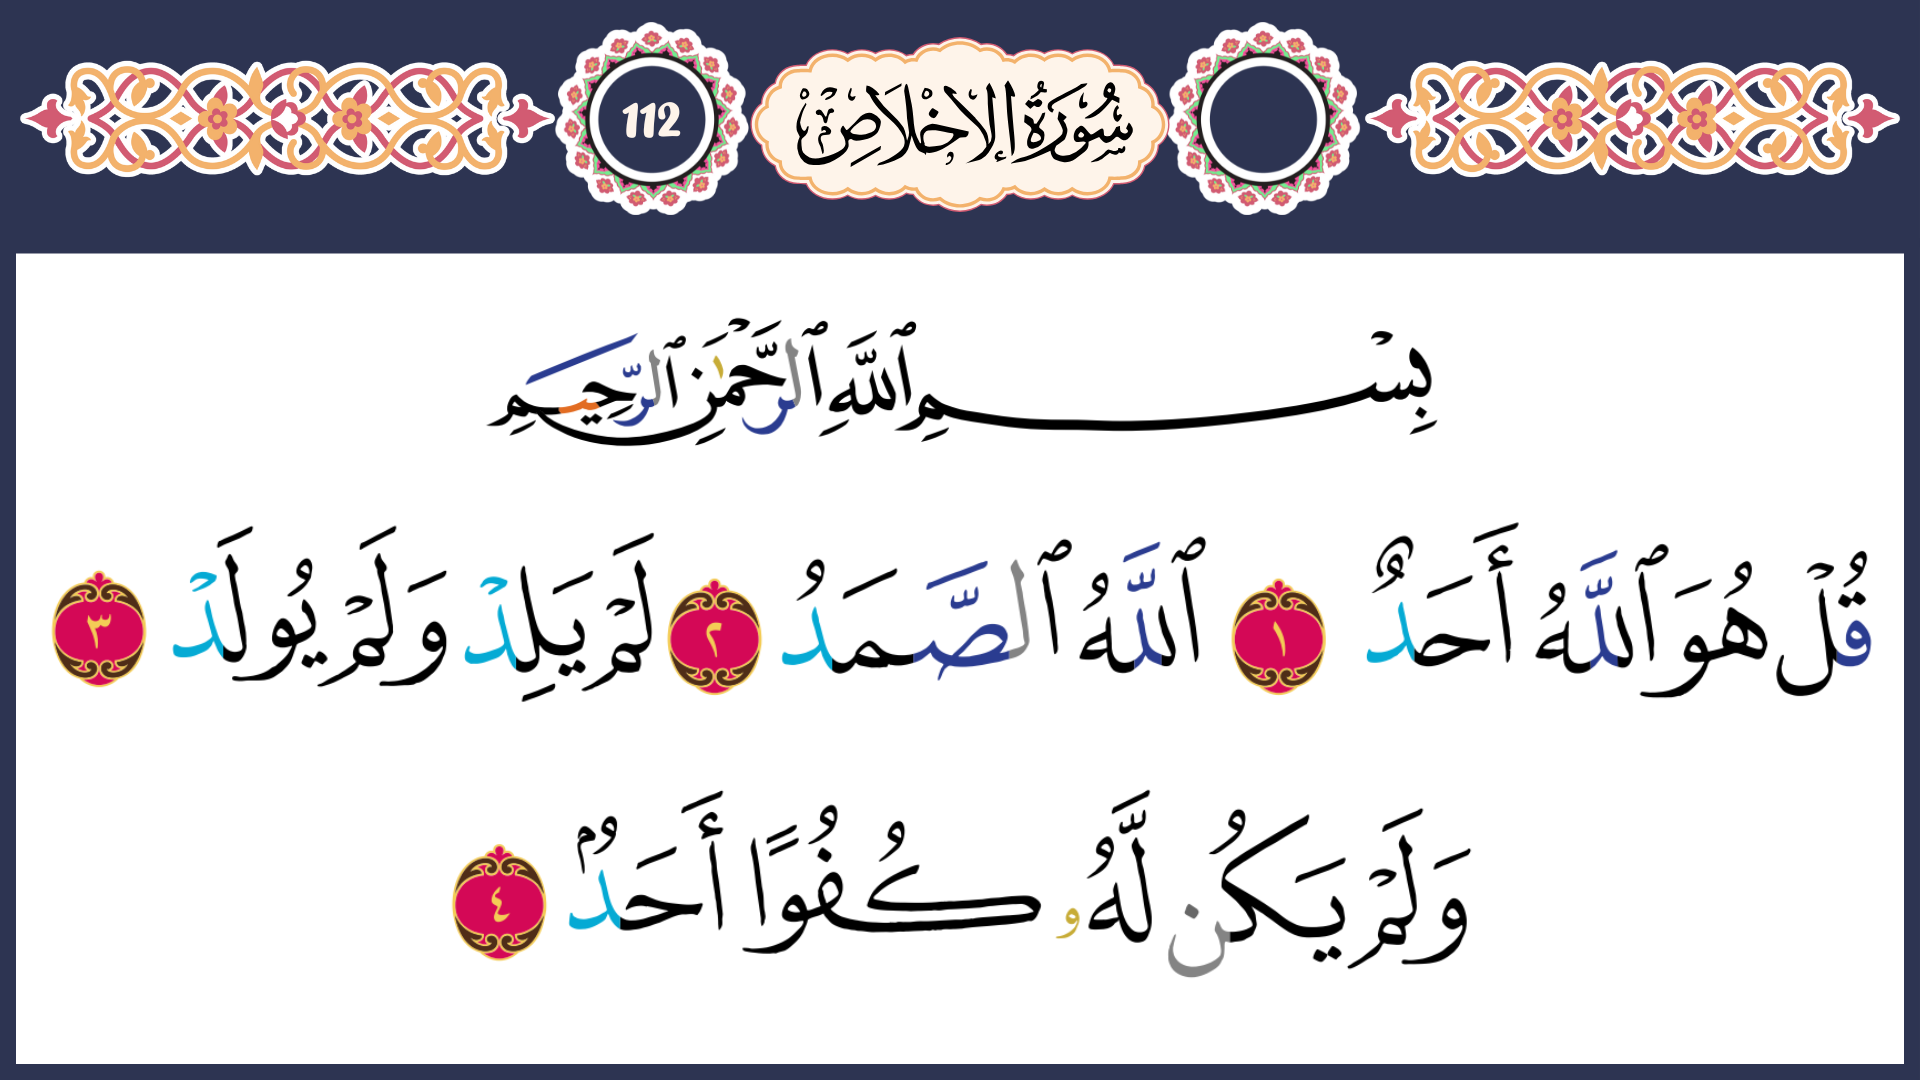 سُورَةُ الإِخْلَاصِ
112
بِسْمِ ٱللَّهِ ٱلرَّحْمَٰنِ ٱلرَّحِيمِ
قُلْ هُوَ ٱللَّهُ أَحَدٌ ١ ٱللَّهُ ٱلصَّمَدُ ٢ لَمْ يَلِدْ وَلَمْ يُولَدْ ٣
وَلَمْ يَكُن لَّهُۥ كُفُوًا أَحَدٌۢ ٤